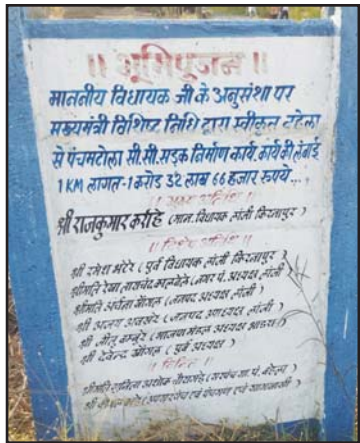 ॥ भूमिपूजन ॥
माननीय विधायक जी के अनुसंशा पर
मुख्यमंत्री विशिष्ट निधि द्वारा स्वीकृत टहेला
से पंचमटोला सी.सी.सड़क निर्माण कार्य, कार्य की लंबाई
1 KM लागत-1 करोड़ 32 लाख 66 हजार रुपये...
॥ मुख्य अतिथि ॥
श्री राजकुमार कर्राहे (मान. विधायक लांजी किरनापुर)
॥ विशेष अतिथि ॥
श्री रमेश भटेरे (पूर्व विधायक लांजी किरनापुर)
श्रीमति रेखा कालबेले (नगर पं. अध्यक्ष लांजी)
श्रीमति अर्चना (जनपद अध्यक्ष लांजी)
श्री अजय अवसरे (जनपद उपाध्यक्ष लांजी)
श्री (भाजपा मंडल अध्यक्ष)
श्री देवेन्द्र (पूर्व अध्यक्ष)
श्रीमति अशोक (सरपंच ग्रा. पं. टहेला)
श्री (उपसरपंच एवं पंचगण एवं ग्रामवासी)